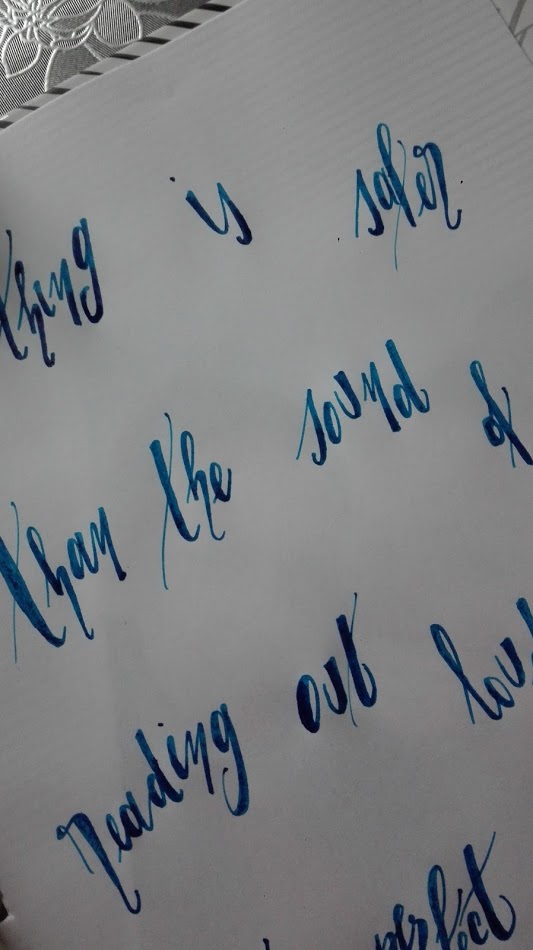 thing is safer
than the sound of
reading out lou
perfect